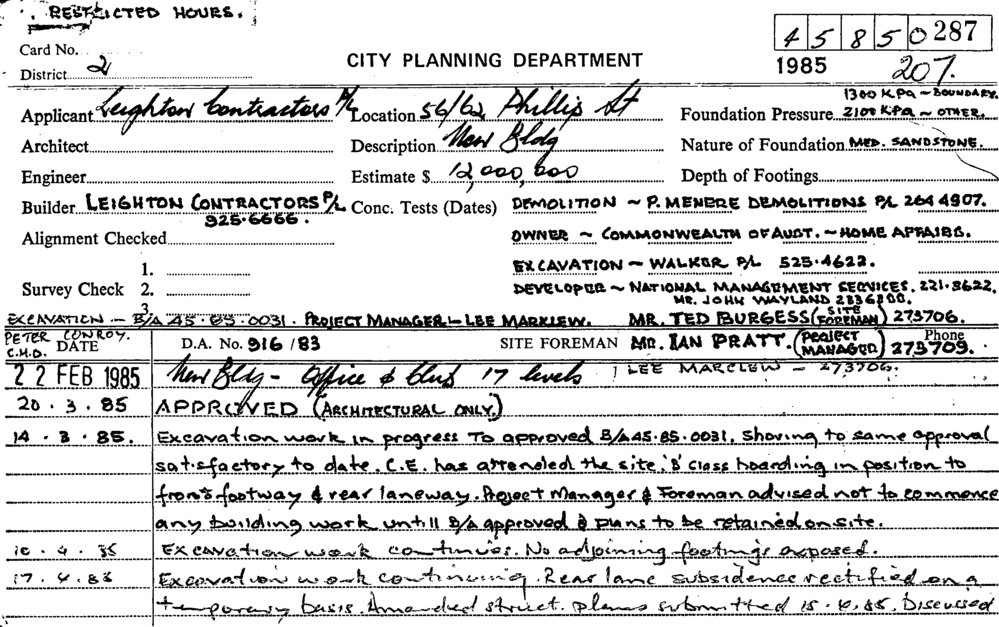 RESTRICTED HOURS.
Card No.
District 2
CITY PLANNING DEPARTMENT
4 5 8 5 0 287
1985 207.
Applicant Leighton Contractors P/L Location 56/62 Phillip St Foundation Pressure 1300 KPa ~ BOUNDARY.
2100 KPa ~ OTHER.
Architect Description New Bldg Nature of Foundation MED. SANDSTONE.
Engineer Estimate $ 12,000,000 Depth of Footings
Builder LEIGHTON CONTRACTORS P/L Conc. Tests (Dates) DEMOLITION ~ P. MENERE DEMOLITIONS P/L 264 4907.
925-6666.
Alignment Checked OWNER ~ COMMONWEALTH OF AUST. ~ HOME AFFAIRS.
1. EXCAVATION ~ WALKER P/L 525-4622.
Survey Check 2. DEVELOPER ~ NATIONAL MANAGEMENT SERVICES. 221-3622,
MR. JOHN WAYLAND
3.
EXCAVATION – B/A 45·85·0031. PROJECT MANAGER – LEE MARKLEW. MR. TED BURGESS (SITE FOREMAN) 273706.
PETER CONROY.
C.H.D. DATE D.A. No. 916/83 SITE FOREMAN MR. IAN PRATT. (PROJECT MANAGER) Phone 273709.
22 FEB 1985 New Bldg – Office & Club 17 levels LEE MARCLEW – 273706.
20 · 3 · 85 APPROVED (ARCHITECTURAL ONLY.)
14 · 3 · 85. Excavation work in progress to approved B/A 45·85·0031. Shoring to same approval
satisfactory to date. C.E. has attended the site. 'B' class hoarding in position to
front footway & rear laneway. Project Manager & Foreman advised not to commence
any building work untill B/A approved & plans to be retained on site.
10 · 4 · 85 Excavation work continues. No adjoining footings exposed.
17 . 4 . 85 Excavation work continuing. Rear lane subsidence rectified on a
temporary basis. Amended struct. plans submitted 15·4·85. Discussed